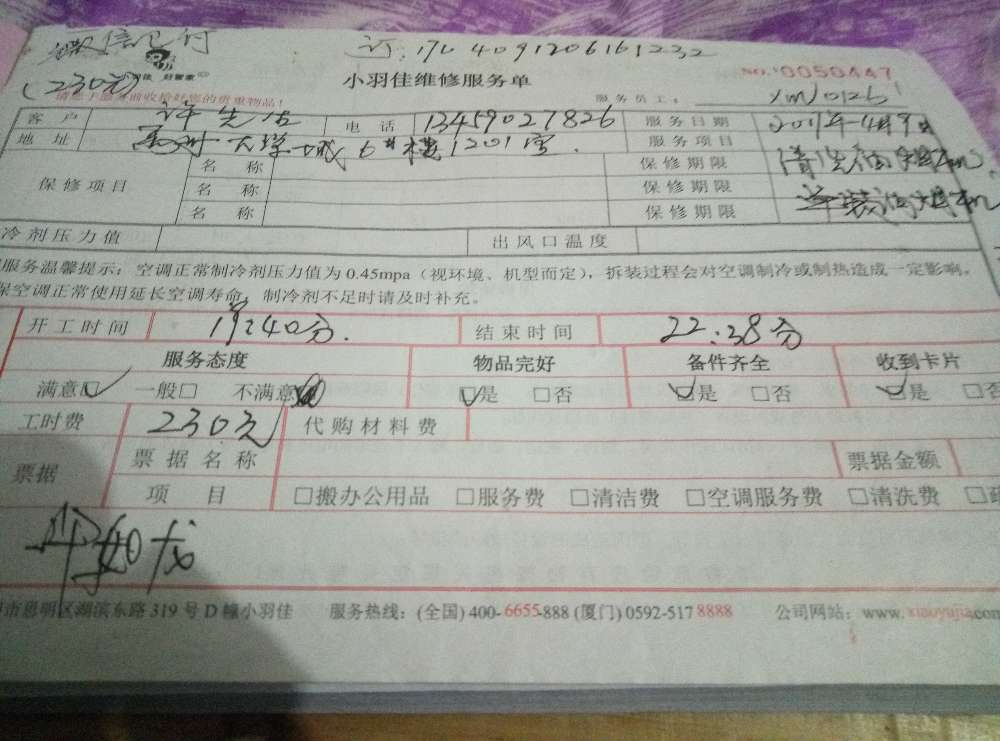 微信已付 订:1704091206161232
(230元) 好慧家 小羽佳维修服务单 NO.0050447
服务员工: XMJ0126
客户 许先生 电话 13459027826 服务日期 2017年4月9日
地址 大学城6#楼1201室. 服务项目
保修项目 名称 保修期限 清洗油烟机,
名称 保修期限 油烟机
名称 保修期限
冷剂压力值 出风口温度
服务温馨提示:空调正常制冷剂压力值为0.45mpa(视环境、机型而定),拆装过程会对空调制冷或制热造成一定影响。
保空调正常使用延长空调寿命,制冷剂不足时请及时补充。
开工时间 19:40分. 结束时间 22:38分
服务态度 物品完好 备件齐全 收到卡片
满意□ 一般□ 不满意 □是 □否 □是 □否 □是 □否
工时费 230元 代购材料费
票据 票据名称 票据金额
项目 □搬办公用品 □服务费 □清洁费 □空调服务费 □清洗费
市思明区湖滨东路319号D幢小羽佳 服务热线:(全国)400-6655-888(厦门)0592-5178888 公司网站:www.xiaoyujia.com